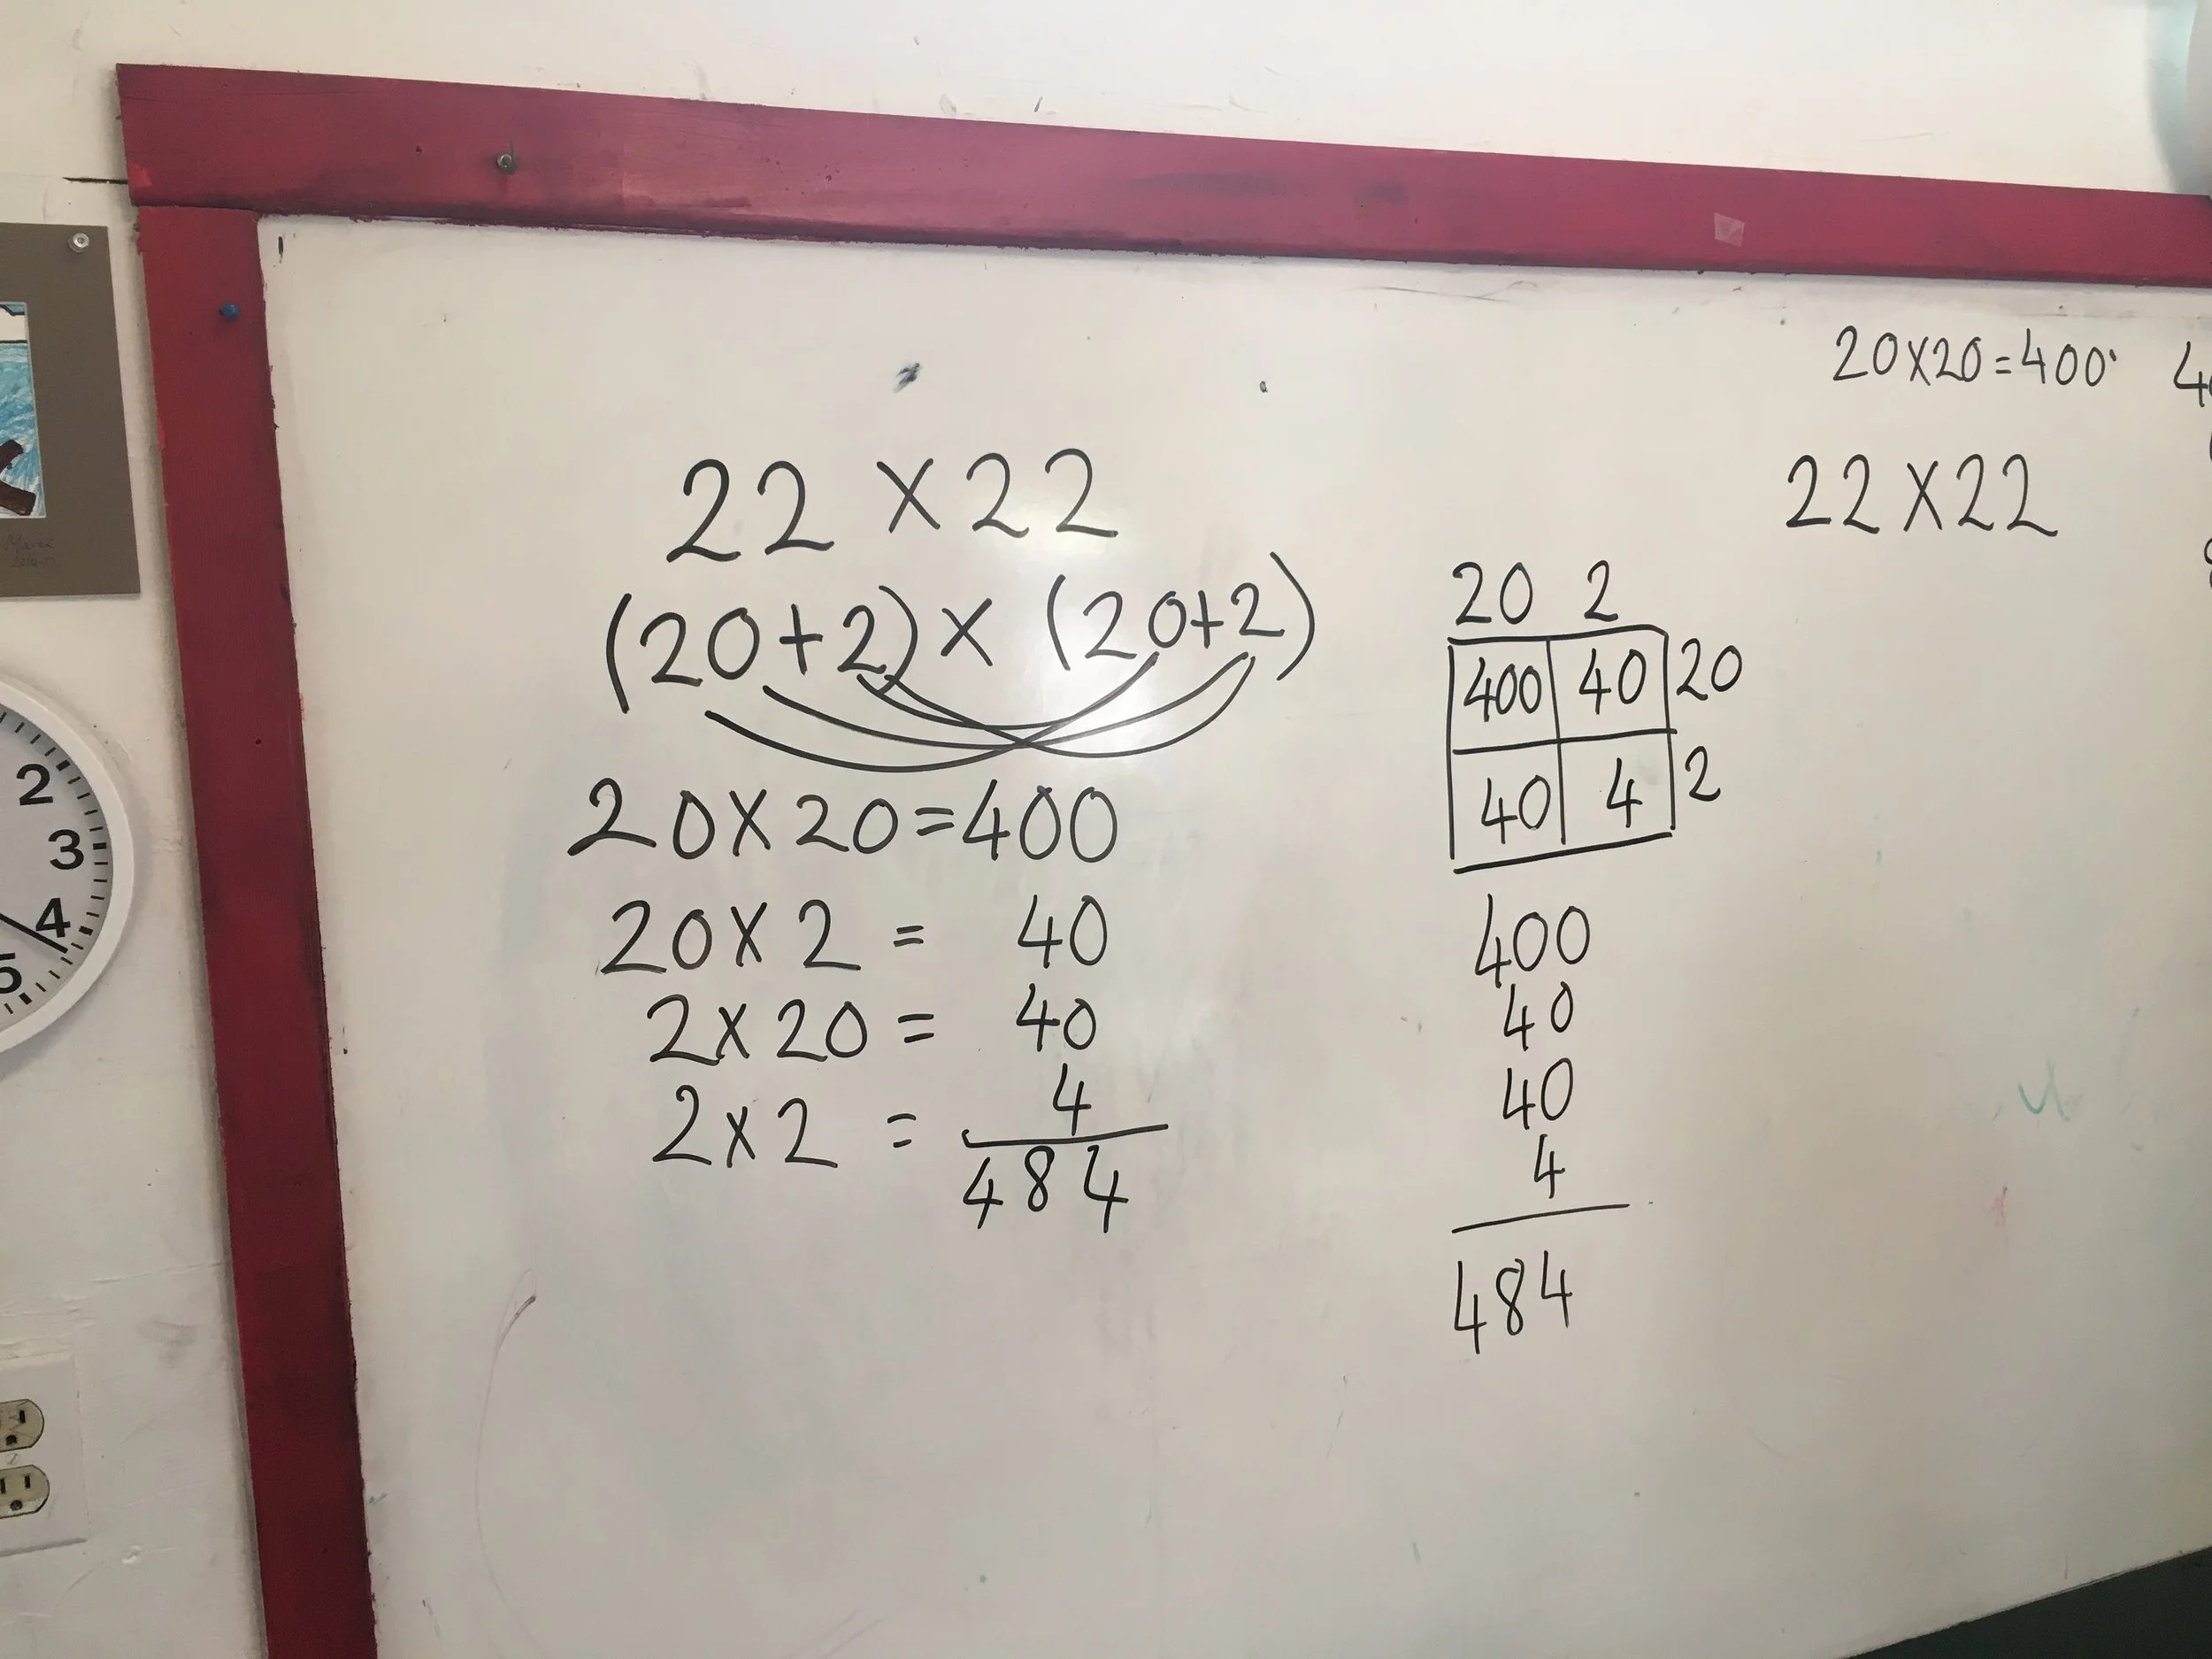 22 × 22
(20+2) × (20+2)
20×20=400
20×2 = 40
2×20 = 40
2×2 = 4
484
20 2
400 40 20
40 4 2
400
40
40
4
484
20×20=400
22×22
2
3
4
5